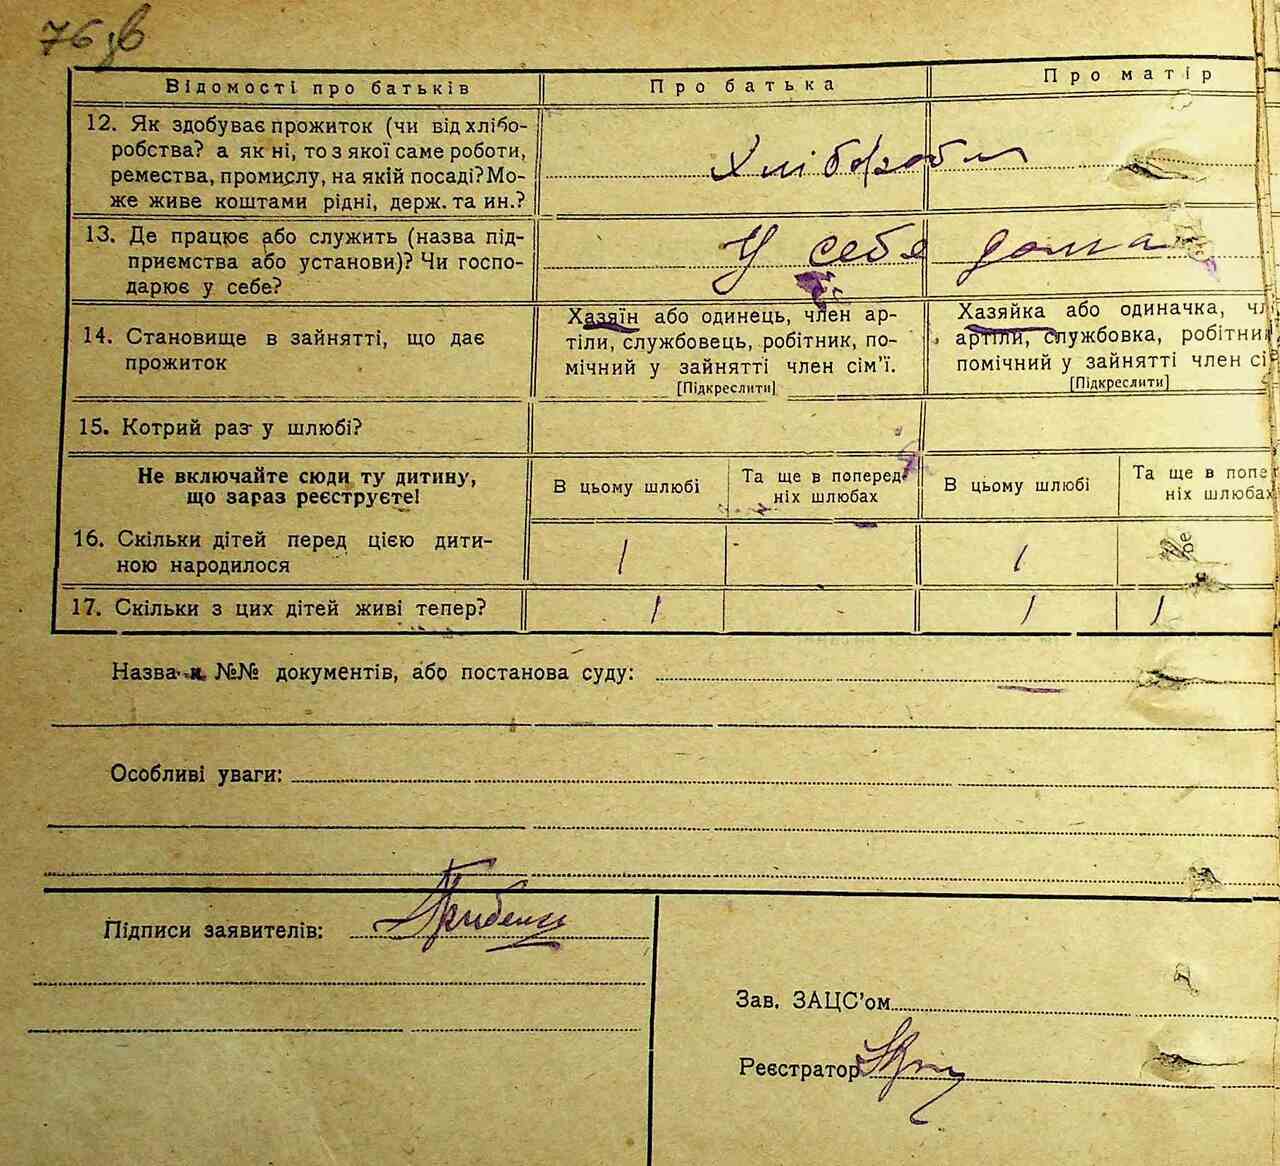 76 зв
Відомості про батьків Про батька Про матір
12. Як здобуває прожиток (чи від хлібо-
робства? а як ні, то з якої саме роботи,
ремества, промислу, на якій посаді? Мо-
же живе коштами рідні, держ. та ин.?
Хлібороби
13. Де працює або служить (назва під-
приємства або установи)? Чи госпо-
дарює у себе?
У себе дома
14. Становище в зайнятті, що дає
прожиток
Хазяїн або одинець, член ар-
тіли, службовець, робітник, по-
мічний у зайнятті член сім'ї.
[Підкреслити]
Хазяйка або одиначка, чл
артіли, службовка, робітни
помічний у зайнятті член сі
[Підкреслити]
15. Котрий раз у шлюбі?
Не включайте сюди ту дитину,
що зараз реєструєте!
В цьому шлюбі
Та ще в поперед-
ніх шлюбах
В цьому шлюбі
Та ще в попе
ніх шлюбах
16. Скільки дітей перед цією дити-
ною народилося
1 1
17. Скільки з цих дітей живі тепер?
1 1 1
Назва и №№ документів, або постанова суду:
Особливі уваги:
Підписи заявителів:
Зав. ЗАЦС'ом
Реєстратор